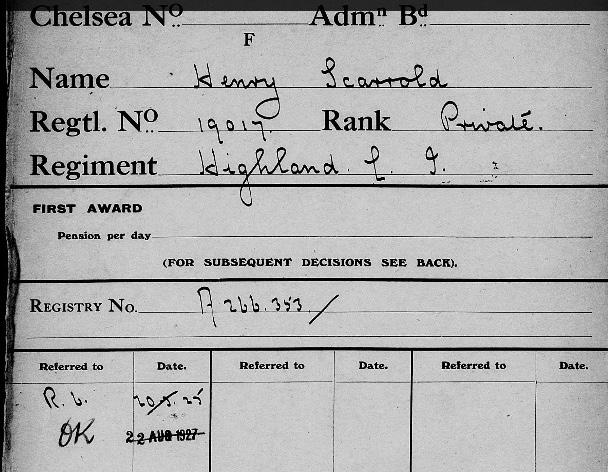 Chelsea Nº. Admⁿ Bᵈ
F
Name Henry Scarrold
Regtl. Nº. 19017. Rank Private.
Regiment Highland L. I.
FIRST AWARD
Pension per day
(FOR SUBSEQUENT DECISIONS SEE BACK).
REGISTRY No. A 266.353/
Referred to Date. Referred to Date. Referred to Date.
R. L. 20.5.25
OK 22 AUG 1927